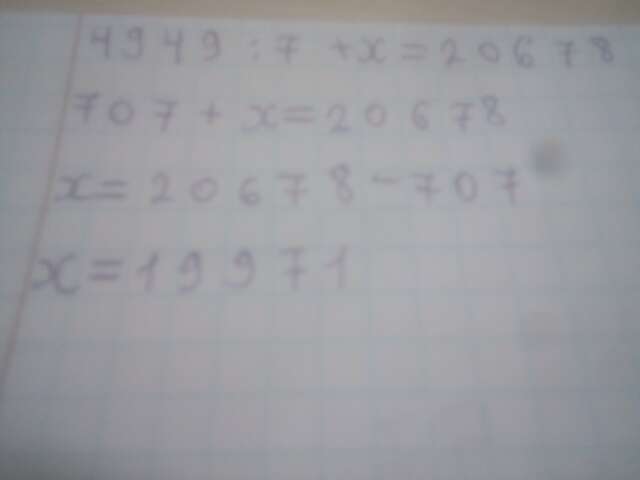 4949 : 7 + x = 20678
707 + x = 20678
x = 20678 - 707
x = 19971